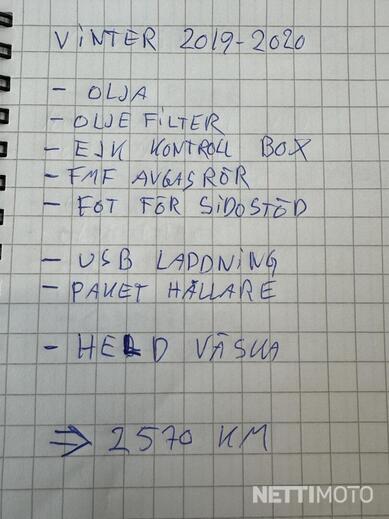 VINTER 2019-2020
- OLJA
- OLJEFILTER
- EJK KONTROLL BOX
- FMF AVGASRÖR
- FOT FÖR SIDOSTÖD
- USB LADDNING
- PAKET HÅLLARE
- HELD VÄSKA
⇒ 2570 KM
NETTIMOTO